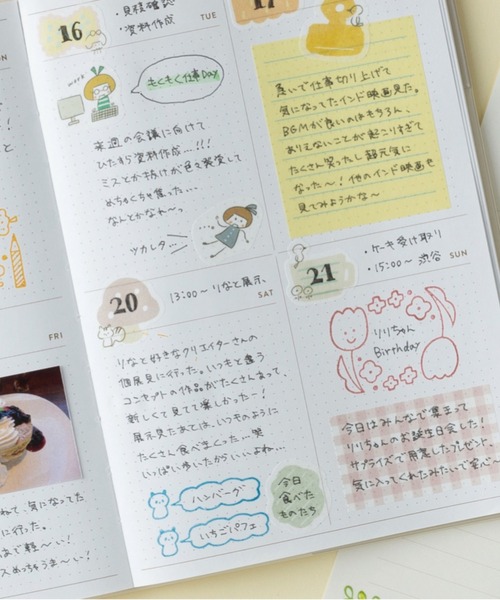 16
・見積確認
・資料作成
TUE
work
もくもく仕事Day
来週の会議に向けて
ひたすら資料作成…!!!
ミスとか抜けが色々発覚して
めちゃくちゃ焦った…
なんとかなれ〜っ
ツカレタ…
17
急いで仕事切り上げて
気になってたインド映画見た。
BGMが良いのはもちろん、
ありえないことが起こりすぎて
たくさん笑ったし超元気に
なった〜！他のインド映画も
見てみようかな〜
FRI
ねて、気になってた
に行った。
で軽〜い！
めっちゃうま〜い！
20
13:00〜 りなと展示、
SAT
りなと好きなクリエイターさんの
個展見に行った。いつもと違う
コンセプトの作品がたくさんあって、
新しくて見てて楽しかった〜！
展示見たあとは、いつものように
たくさん食べまくった…笑
いっぱい歩いたからいいよね…
ハンバーグ
いちごパフェ
今日
食べた
ものたち
21
・ケーキ受け取り
・15:00〜 渋谷
SUN
りりちゃん
Birthday
今日はみんなで集まって
りりちゃんのお誕生日会した！
サプライズで用意したプレゼント、
気に入ってくれたみたいで安心〜